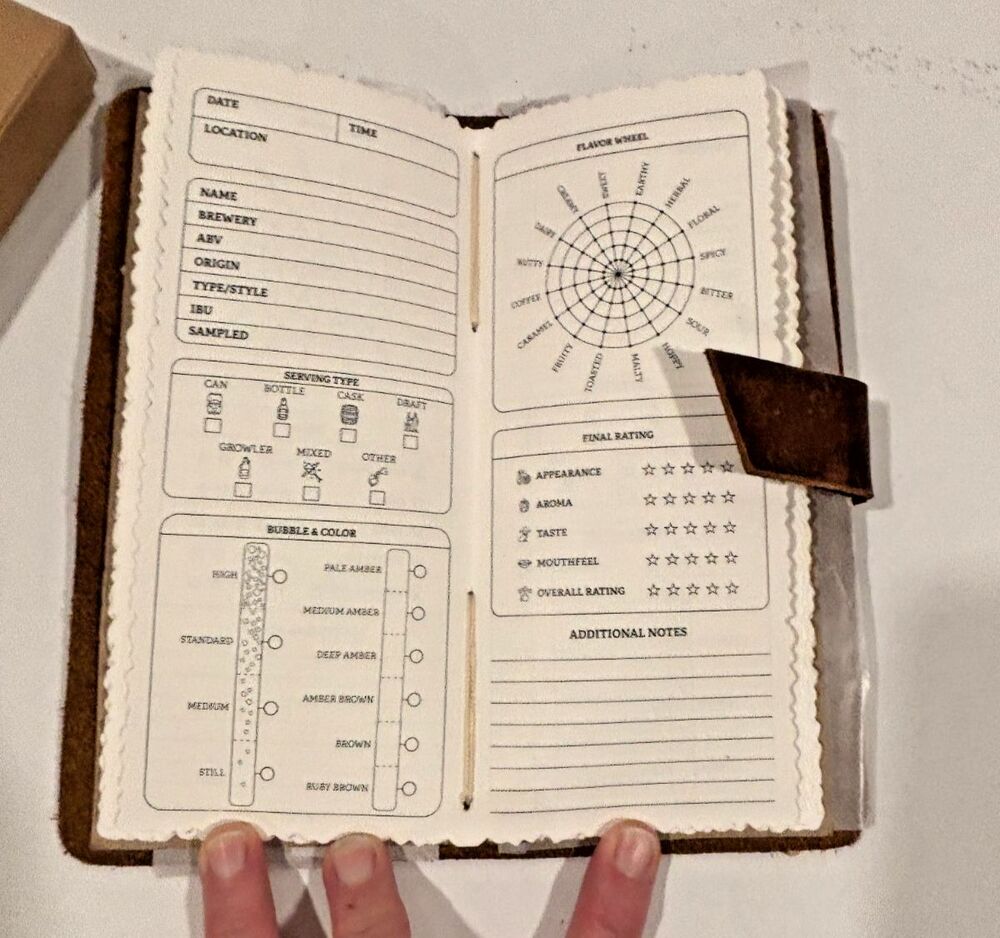 DATE
TIME
LOCATION
NAME
BREWERY
ABV
ORIGIN
TYPE/STYLE
IBU
SAMPLED
SERVING TYPE
CAN BOTTLE CASK DRAFT
GROWLER MIXED OTHER
BUBBLE & COLOR
HIGH
STANDARD
MEDIUM
STILL
PALE AMBER
MEDIUM AMBER
DEEP AMBER
AMBER BROWN
BROWN
RUBY BROWN
FLAVOR WHEEL
SWEET
EARTHY
HERBAL
FLORAL
SPICY
BITTER
SOUR
HOPPY
MALTY
TOASTED
FRUITY
CARAMEL
COFFEE
NUTTY
DAIRY
CREAMY
FINAL RATING
APPEARANCE
AROMA
TASTE
MOUTHFEEL
OVERALL RATING
ADDITIONAL NOTES